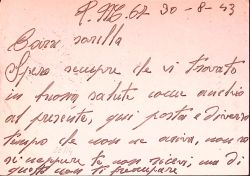 P.M. 62 30-8-43
Cara sorella
Spero sempre che vi trovate
in buona salute come anch'io
al presente, qui posta è diverso
tempo che non ne arriva, non so
si neppure te non ricevi, ma di
questo non ti preoccupare